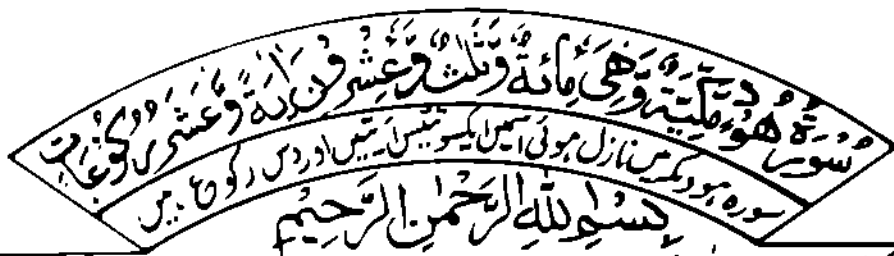 سُوْرَةُ هُوْدٍ مَّكِّيَّةٌ وَّهِيَ مِائَةٌ وَّثَلٰثٌ وَّعِشْرُوْنَ اٰيَةً وَّعَشَرُ رُكُوْعَاتٍ
سورہ ہود مکہ میں نازل ہوئی اسمیں ایکسو تئیس آیتیں اور دس رکوع ہیں
بِسْمِ اللهِ الرَّحْمٰنِ الرَّحِيْمِ